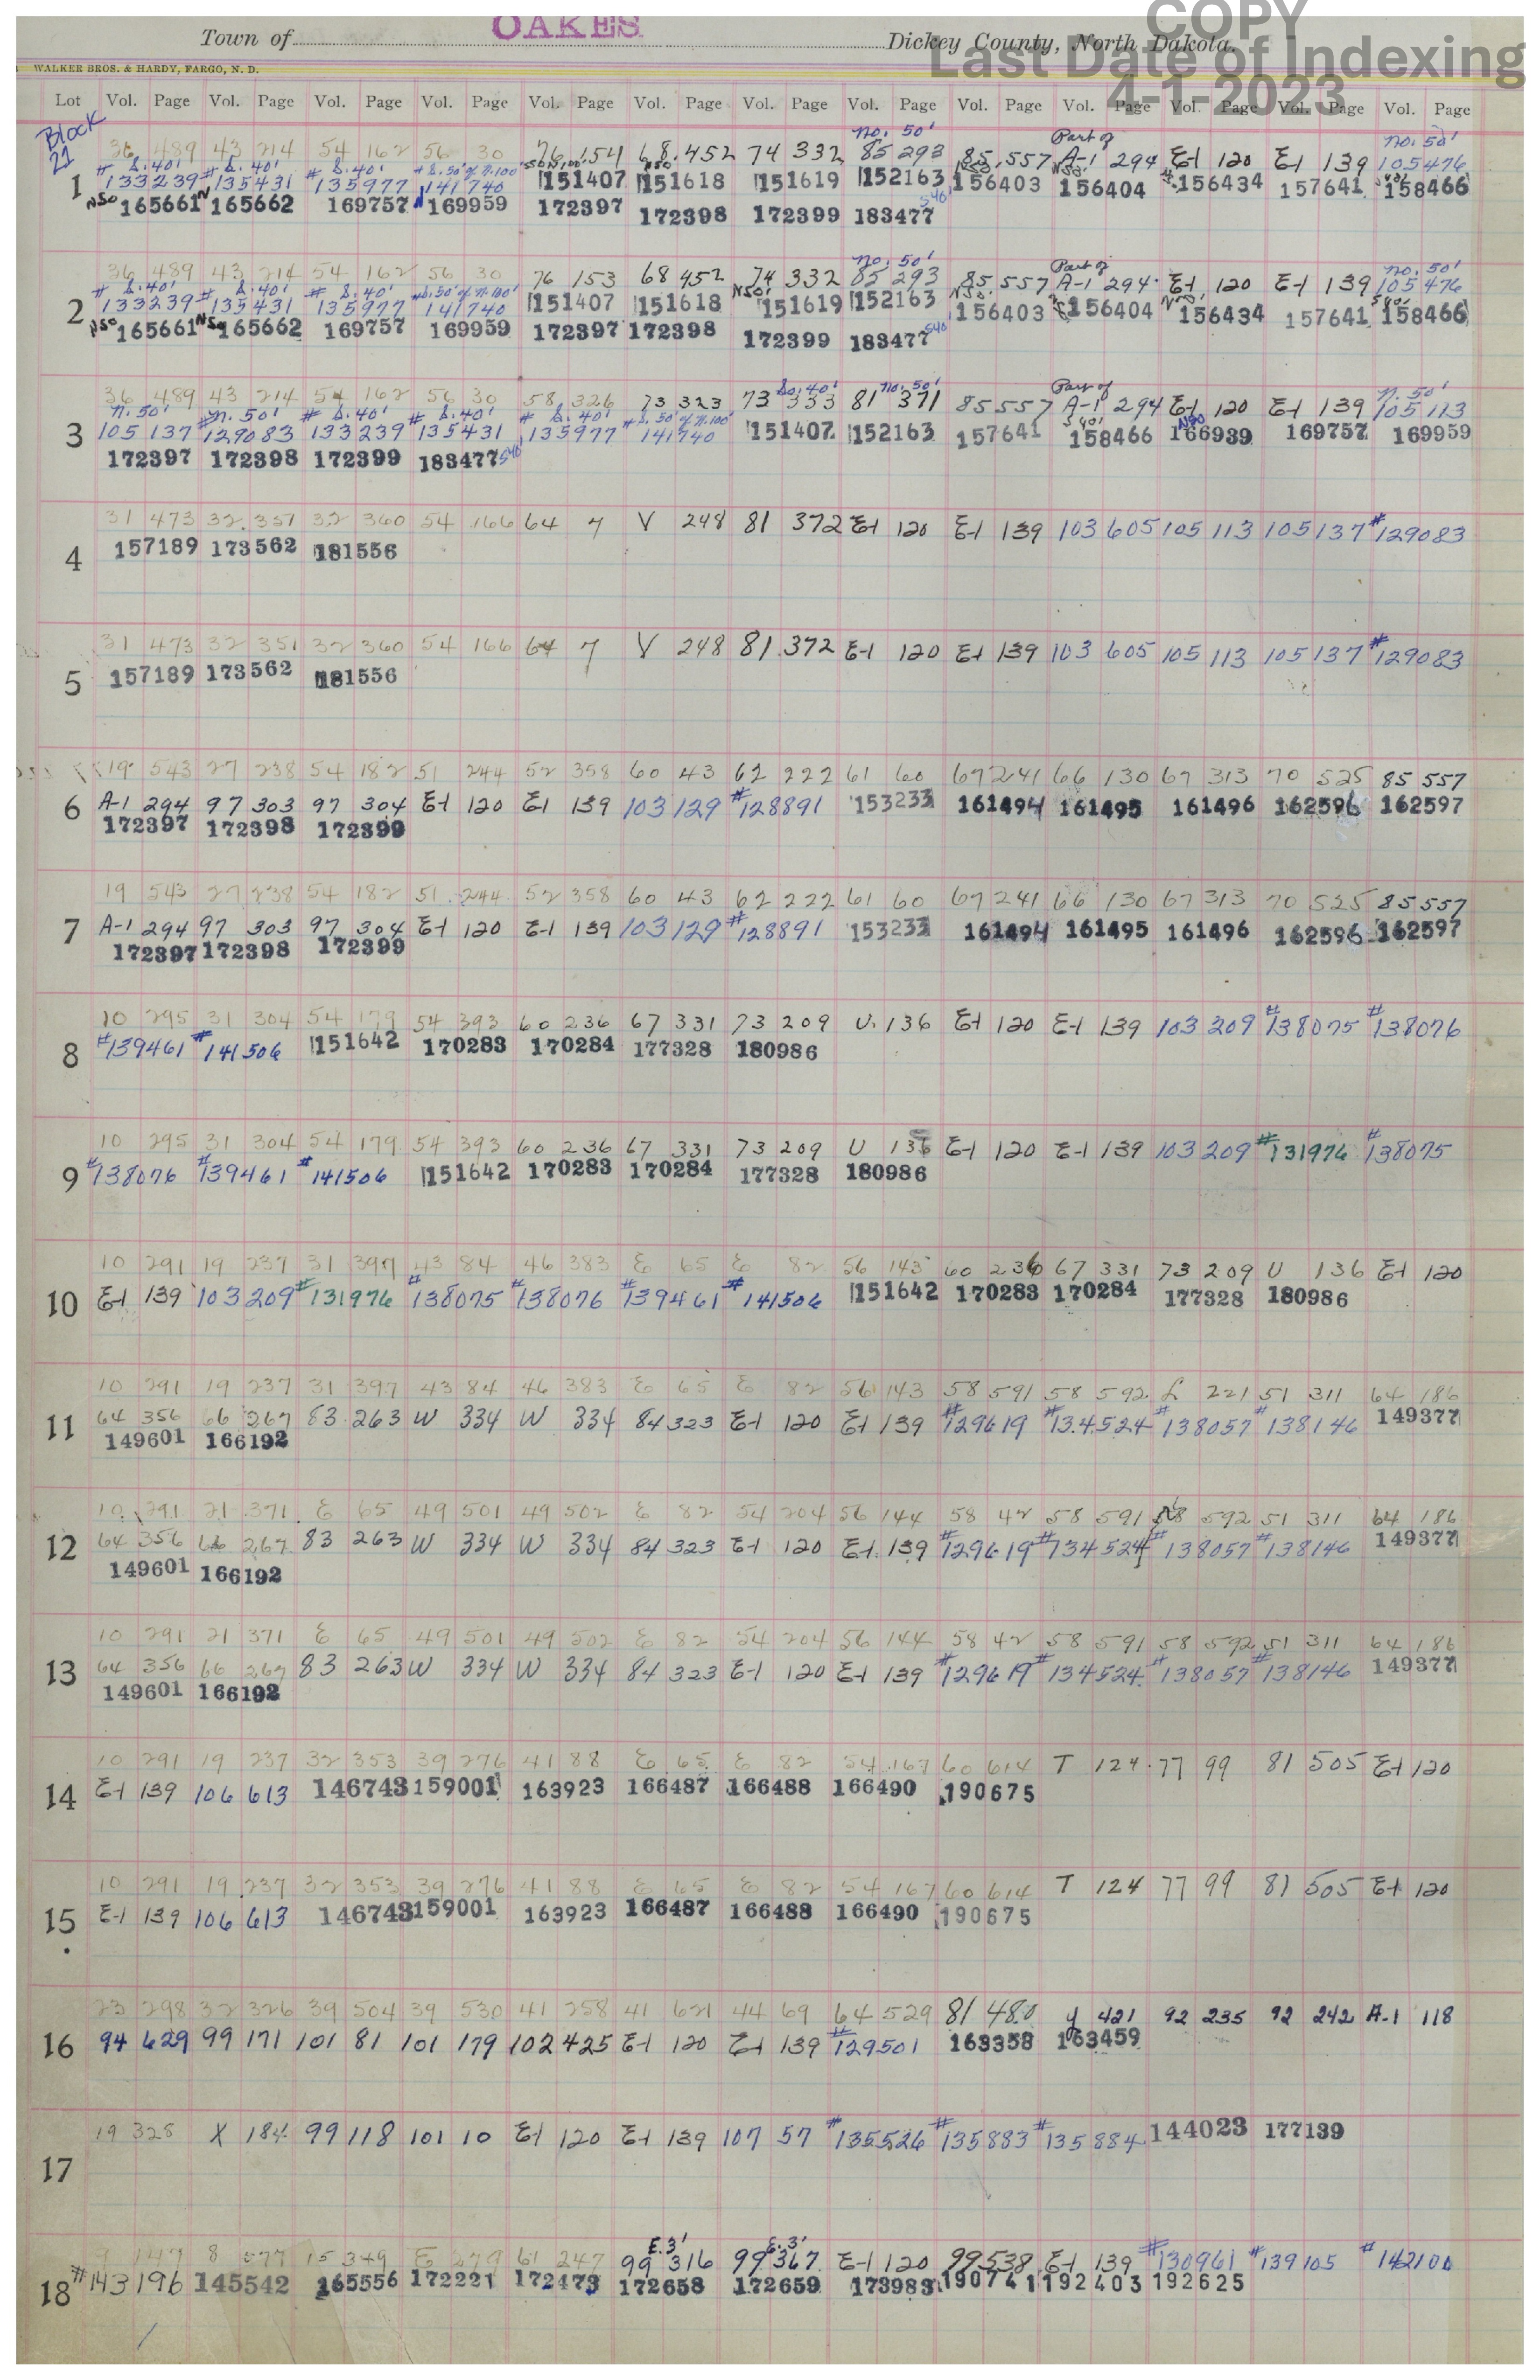 COPY
Last Date of Indexing
4-1-2023
OAKES
Town of Dickey County, North Dakota.
WALKER BROS. & HARDY, FARGO, N. D.
Lot Vol. Page Vol. Page Vol. Page Vol. Page Vol. Page Vol. Page Vol. Page Vol. Page Vol. Page Vol. Page Vol. Page Vol. Page Vol. Page
Block 21
no. 50' Part of no. 50'
36 489 43 214 54 162 56 30 76 154 68 452 74 332 85 293 85 557 A-1 294 E-1 120 E-1 139 105 476
# S. 40' # S. 40' # S. 40' # S. 50' of N. 100'
1 133239 135431 135977 141740 151407 151618 151619 152163 156403 156404 156434 157641 158466
N50 165661 N 165662 169757 169959 172397 172398 172399 183477 S40
no. 50' Part of no. 50'
36 489 43 214 54 162 56 30 76 153 68 452 74 332 85 293 85 557 A-1 294 E-1 120 E-1 139 105 476
# S. 40' # S. 40' # S. 40' # S. 50' of N. 100'
2 133239 135431 135977 141740 151407 151618 N50' 151619 152163 156403 156404 156434 157641 158466
N50 165661 N50 165662 169757 169959 172397 172398 172399 183477 S40
So. 40' no. 50' Part of N. 50'
36 489 43 214 54 162 56 30 58 326 73 323 73 333 81 371 85 557 A-1 294 E-1 120 E-1 139 105 113
N. 50' # N. 50' # S. 40' # S. 40' # S. 40' # S. 50' of N. 100' S 40' N50
3 105 137 129083 133239 135431 135977 141740 151407 152163 157641 158466 166939 169757 169959
172397 172398 172399 183477 S40
31 473 32 351 32 360 54 166 64 7 V 248 81 372 E-1 120 E-1 139 103 605 105 113 105 137 #129083
4 157189 173562 181556
31 473 32 351 32 360 54 166 64 7 V 248 81 372 E-1 120 E-1 139 103 605 105 113 105 137 #129083
5 157189 173562 181556
19 543 27 238 54 182 51 244 52 358 60 43 62 222 61 60 67 241 66 130 67 313 70 525 85 557
6 A-1 294 97 303 97 304 E-1 120 E-1 139 103 129 #128891 153233 161494 161495 161496 162596 162597
172397 172398 172399
19 543 27 238 54 182 51 244 52 358 60 43 62 222 61 60 67 241 66 130 67 313 70 525 85 557
7 A-1 294 97 303 97 304 E-1 120 E-1 139 103 129 #128891 153233 161494 161495 161496 162596 162597
172397 172398 172399
10 295 31 304 54 179 54 393 60 236 67 331 73 209 U. 136 E-1 120 E-1 139 103 209 #138075 #138076
8 #139461 #141506 151642 170283 170284 177328 180986
10 295 31 304 54 179 54 393 60 236 67 331 73 209 U 136 E-1 120 E-1 139 103 209 #131976 #138075
9 #138076 #139461 #141506 151642 170283 170284 177328 180986
10 291 19 237 31 397 43 84 46 383 E 65 E 82 56 143 60 236 67 331 73 209 U 136 E-1 120
10 E-1 139 103 209 #131976 #138075 #138076 #139461 #141506 151642 170283 170284 177328 180986
10 291 19 237 31 397 43 84 46 383 E 65 E 82 56 143 58 591 58 592 L 221 51 311 64 186
11 64 356 66 267 83 263 W 334 W 334 84 323 E-1 120 E-1 139 #129619 #134524 #138057 #138146 149377
149601 166192
10 291 21 371 E 65 49 501 49 502 E 82 54 204 56 144 58 42 58 591 58 592 51 311 64 186
12 64 356 66 267 83 263 W 334 W 334 84 323 E-1 120 E-1 139 #129619 #134524 #138057 #138146 149377
149601 166192
10 291 21 371 E 65 49 501 49 502 E 82 54 204 56 144 58 42 58 591 58 592 51 311 64 186
13 64 356 66 267 83 263 W 334 W 334 84 323 E-1 120 E-1 139 #129619 #134524 #138057 #138146 149377
149601 166192
10 291 19 237 32 353 39 276 41 88 E 65 E 82 54 167 60 614 T 124 77 99 81 505 E-1 120
14 E-1 139 106 613 146743 159001 163923 166487 166488 166490 190675
10 291 19 237 32 353 39 276 41 88 E 65 E 82 54 167 60 614 T 124 77 99 81 505 E-1 120
15 E-1 139 106 613 146743 159001 163923 166487 166488 166490 190675
23 298 32 326 39 504 39 530 41 258 41 621 44 69 64 529 81 480 Y 421 92 235 92 242 A-1 118
16 94 629 99 171 101 81 101 179 102 425 E-1 120 E-1 139 #129501 163358 163459
19 328 X 184 99 118 101 10 E-1 120 E-1 139 107 57 #135526 #135883 #135884 144023 177139
17
E. 3' E. 3'
8 577 15 349 E 279 61 247 99 316 99 367 E-1 120 99 538 E-1 139 #130961 #139105 #142100
18 #143196 145542 165556 172221 172473 172658 172659 173983 190741 192403 192625